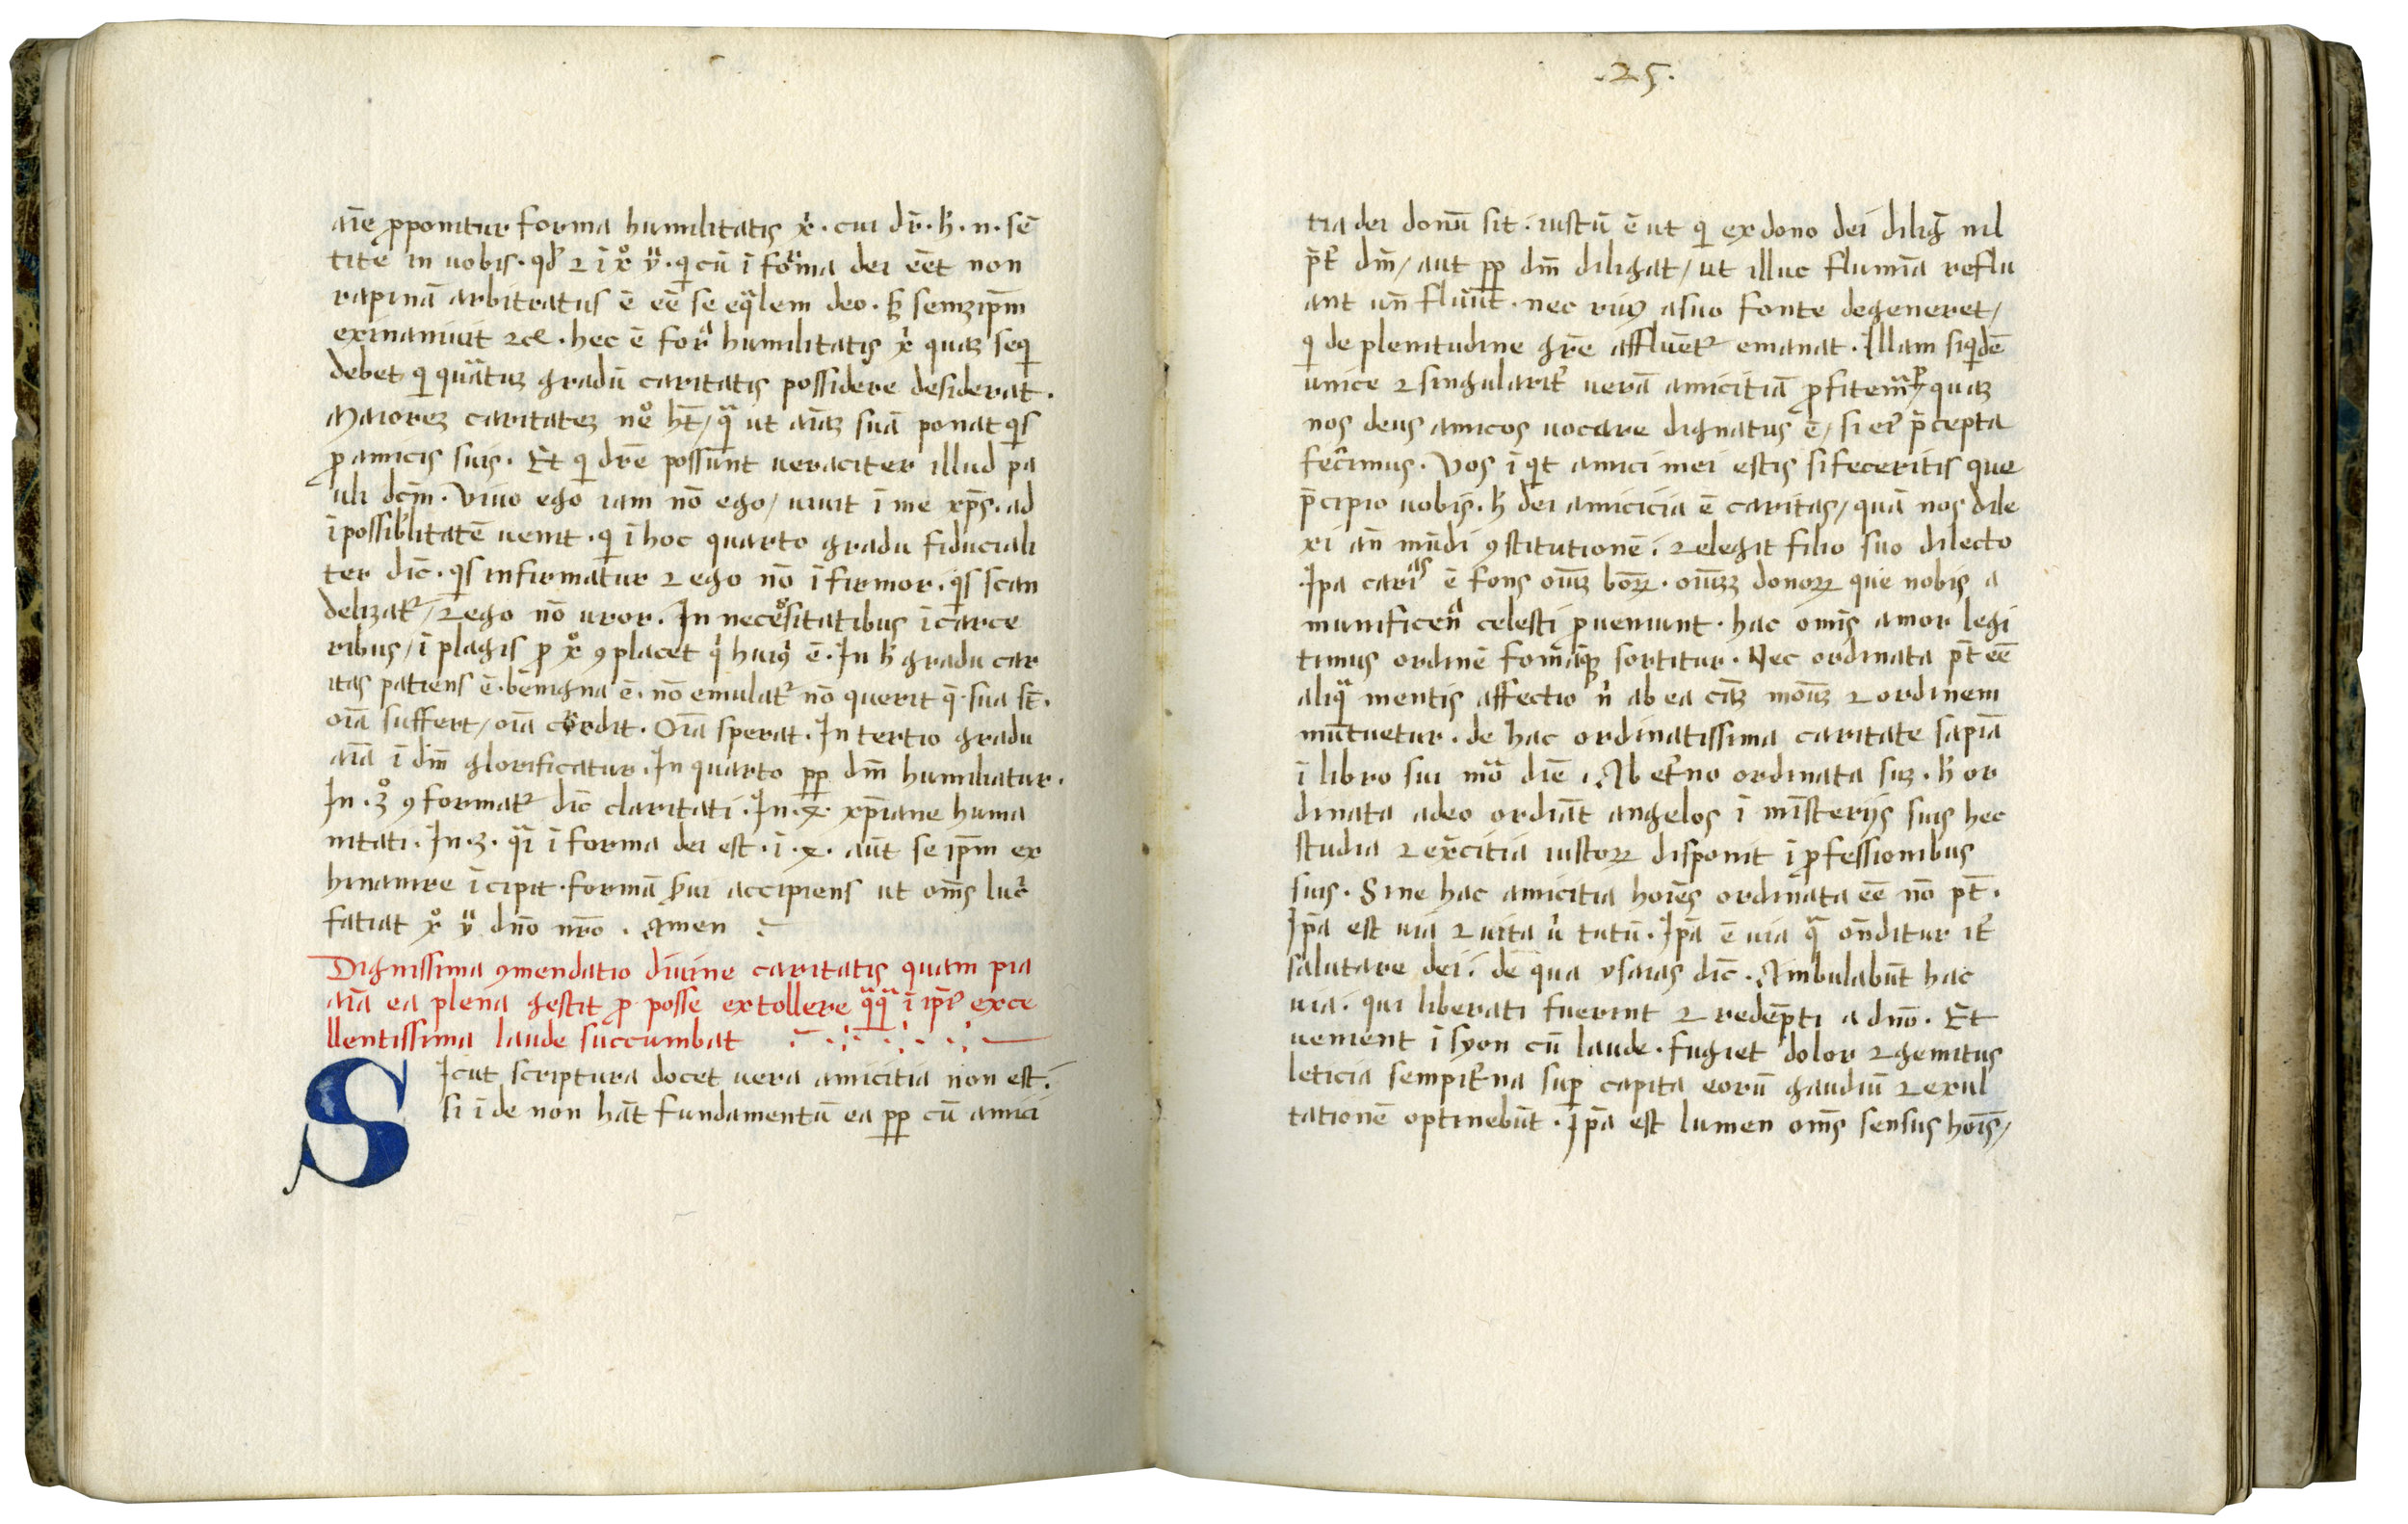 aīe ꝓponitur forma humilitatis xͥ. cui dr̄. h̓. n. sē
tite in uobis. qd̓ ⁊ ī xͦ ẙ. qi cū ī forma dei eēt non
rapinā arbitratus ē eē se eqͣlem deo. ꝫ semꝫip̄m
exinaniuit ⁊cͤ. hec ē forͣ humilitatis xͥ quaꝫ seqi
debet qi quͣtuꝫ gradū caritatis possidere desiderat.
Maioreꝫ caritateꝫ neͦ ht̄/ qͣ ut aīaꝫ suā ponat qis
ꝓ amicis suis. Et qi dr̄e possunt ueraciter illud pa
uli dcī̄m. Viuo ego iam nō ego/ uiuit ī me xp̄s. ad
īpossibl̓itatē uenit. qi ī hoc quarto gradu fiduciali
ter dic̄. qis infirmatur ⁊ ego nō īfirmor. qis scan
delizatᷣ/ ⁊ ego nō uror. In necesͦsitatibus ī carce
ribus/ ī plagis ꝓ xͦ ꝯplacet qͥ huiꝰ ē. In h̓ gradu car
itas patiens ē. benigna ē. nō emulatᷣ nō querit q̄ sua st̄.
oīa suffert/ oīa crͤdit. Oīa sperat. In tertio gradu
aīa ī dm̄ glorificatur. In quarto ꝓꝑ dm̄ humiliatur.
In .3ͦ ꝯformatᷣ dic̄ claritati. In .4. xp̄iane huma
nitati. In .3. qͣi ī forma dei est. ī .4. aūt se ip̄m ex
hinanire īcipit. formā ẜui accipiens ut om̄s lucͥ
fatiat xͦ ẙ dn̄o nr̄o. Amen
Dignissima ꝯmendatio diuine caritatis quam pia
aīa ea plena gestit ꝓ posse extollere qͣqͣ ī ip̄iᷣ exce
llentissima laude succumbat
Sicut scriptura docet uera amicitia non est.
si īde non hāt fundamentū ea ꝓꝑ cū amici
.25.
tia dei donū sit. iustū ē ut qi ex dono dei dilig̓ nil
p̄tᷣ dm̄/ aut ꝓꝑ dm̄ diligat/ ut illuc flumīa reflu
ant un̄ fluūt. nec riuꝰ a suo fonte degeneret/
qi de plenitudine gr̄e affluēt̓ emanat. Illam siqͥdē
unice ⁊ singularit̓ uerā amicitiā ꝓfitemᷣ/ quaꝫ
nos deus amicos uocare dignatus ē/ si ei᷒ p̄cepta
fec̓imus. Vos īqͥt amici mei estis si feceritis que
p̄cipio uobis. h̓ dei amicicia ē caritas/ quā nos dile
xi an̄ mūdi ꝯstitutionē. ⁊ elegit filio suo dilecto
Ipa cariͣˢ ē fons oīuꝫ boꝝ. oīuꝫ donoꝝ que nobis a
munificenͣ celesti ꝓueniunt. hac omīs amor legi
timus ordinē fomāqꝫ sortitur. Nec ordinata pt̄ eē
aliqͣ mentis affectio nͥ ab ea cāꝫ moīuꝫ ⁊ ordinem
mūtuetur. de hac ordinatissima caritate sapīa
ī libro sui mͦ dic̄. Ab etᷣno ordinata suꝫ. h̓ or
dinata adeo ordīat angelos ī misteriis suis hec
studia ⁊ exᷣcitia iustoꝝ disponit ī ꝓfessionibus
suis. Sine hac amicitia hoīes ordīnata eē nō pt̄.
Ip̄a est uia ⁊ uita uͥtutū. Ip̄a ē uia qͣ on̄ditur itᷣ
salutare dei. de qua ysaias dic̄. Ambulabūt hac
uia. qui liberati fuerint ⁊ redēpti a dn̄o. Et
uenient ī syon cū laude. fugiet dolor ⁊ gemitus
leticia sempitᷣna sup̱ capita eorū gaudiū ⁊ exul
tationē optinebūt. Ip̄a est lumen om̄s sensus hoīs/